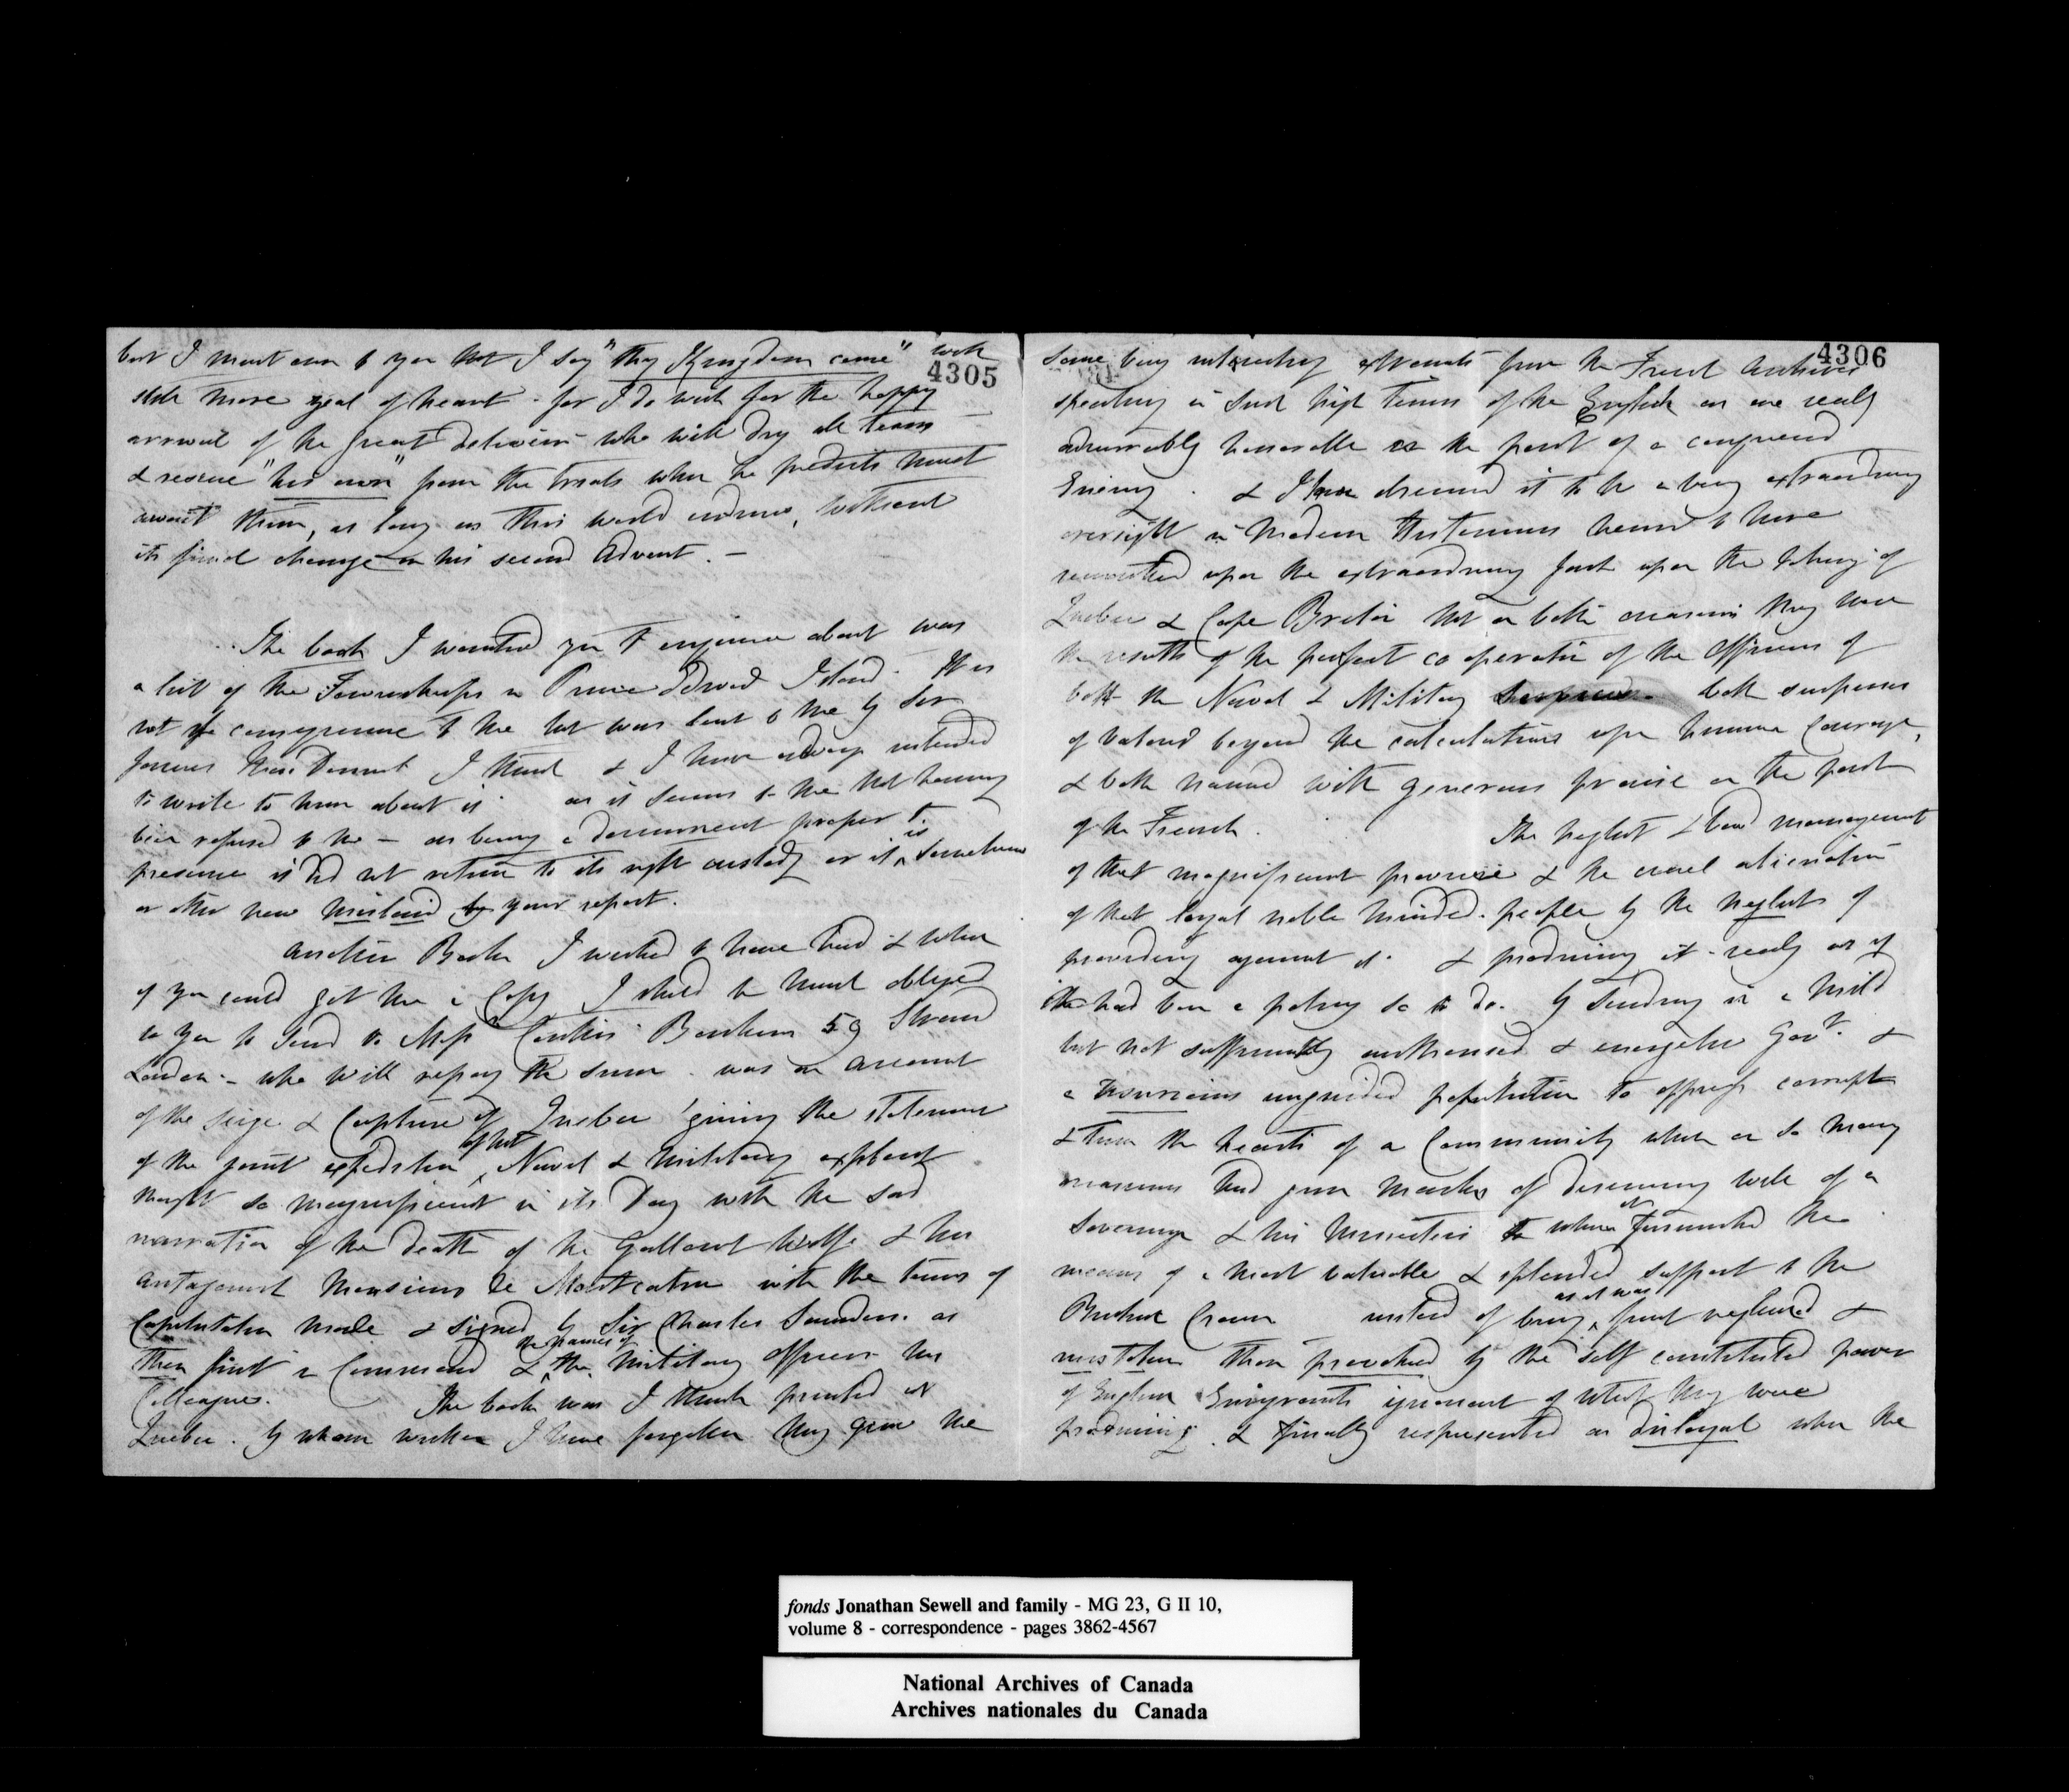 but I must own to you that I say "thy Kingdom come" with
4305
still more zeal of heart - for I do wish for the happy
arrival of the great deliverer who will dry all tears
& rescue "his own" from the trials which he predicts must
await them, as long as this world endures, without
its final change on his second Advent. -
The book I wanted you to enquire about was
a list of the Townships in Prince Edward Island. It is
not of consequence to me but was lent to me by Sir
James I think & I have always intended
to write to him about it as it seems to me not having
been refused to me - as being a document proper to
preserve it did not return to its right custody or it is somehow
or other now mislaid by your report.
Another Book I wished to have had & which
if you could get me a Copy I should be much obliged
to you to send to Messrs Coutts Bankers 59 Strand
London - who will repay the sum - was an account
of the siege & Capture of Quebec giving the statement
of the joint expedition of that Naval & Military exploit
thought so magnificent in its Day with the sad
narration of the death of the Gallant Wolfe & his
antagonist Monsieur de Montcalm with the terms of
Capitulation made & signed by Sir Charles Saunders as
then first in Command & the names of the Military Officers his
Colleagues. The book was I think printed at
Quebec. by whom written I have forgotten they give the
4306
some very interesting extracts from the French Archives
speaking in such high terms of the English as are really
admirably honorable on the part of a conquered
Enemy. & I have deemed it to be a very extraordinary
oversight in Modern Historians never to have
remarked upon the extraordinary fact upon the taking of
Quebec & Cape Breton that on both occasions they were
the results of the perfect co operation of the Officers of
both the Naval & Military both
of Valour beyond the calculations upon human Courage,
& both named with generous praise on the part
of the French. The neglect & bad management
of that magnificent province & the cruel alienation
of that loyal noble minded people by the neglect of
providing against it. & producing it - really as if
it had been a policy so to do. by sending in a mild
but not sufficiently authorised & energetic Govr. &
a unguided population to oppress corrupt
& turn the hearts of a Community which on so many
occasions had given marks of deserving well of a
Sovereign & his Ministers to whom it furnished the
means of a most valuable & splendid support to the
British Crown instead of being as it was first neglected &
mistaken then provoked by the self constituted power
of English Emigrants ignorant of what they were
producing & finally represented as disloyal when the
fonds Jonathan Sewell and family - MG 23, G II 10,
volume 8 - correspondence - pages 3862-4567
National Archives of Canada
Archives nationales du Canada